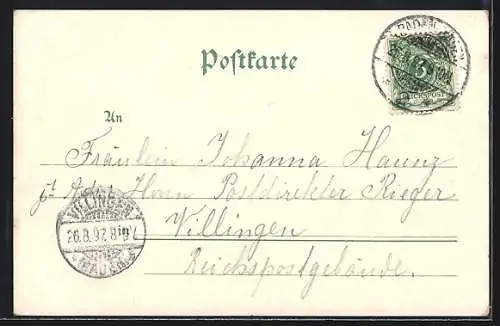 Postkarte
BADEN-BADEN
REICHSPOST
An
Fräulein Johanna Haunz
Adr. Herrn Postdirektor Rieger
VILLINGEN
26.8.97.8
(BADEN)
Villingen
Reichspostgebäude.